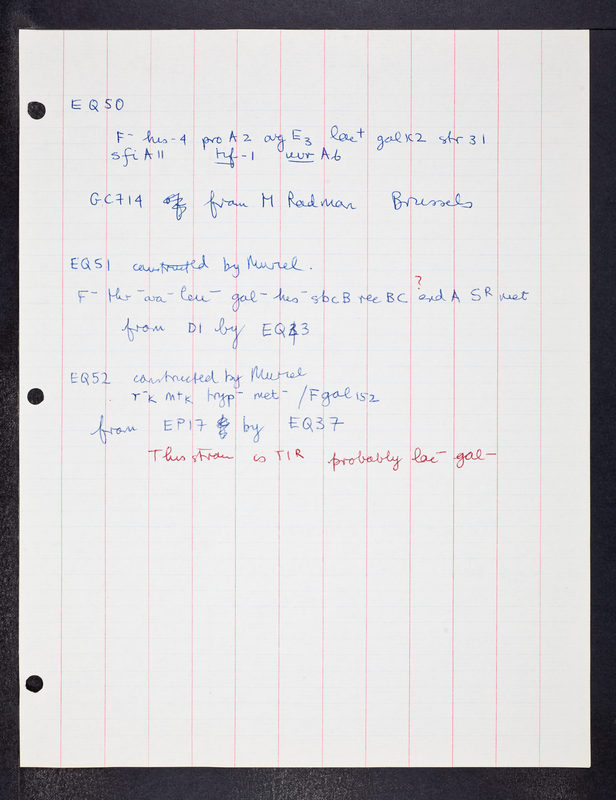 EQ50
F- his-4 proA2 argE3 lac+ galK2 str31
sfiA11 tif-1 uvrA6
GC714 from M Radman Brussels
EQ51 constructed by Muriel.
?
F- thr- ara- leu- gal- his- sbcB recBC endA SR met
from D1 by EQ43
EQ52 constructed by Muriel
r-K m+K tryp- met- /Fgal152
from EP17 by EQ37
This strain is T1R probably lac- gal-